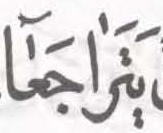 يَتَرَاجَعَآ